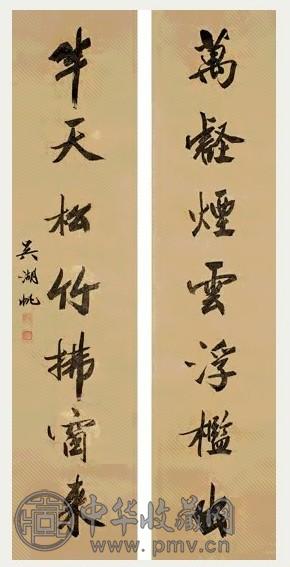 萬壑煙雲浮檻出
半天松竹拂窗來
吳湖帆
中华收藏网
www.pmv.cn